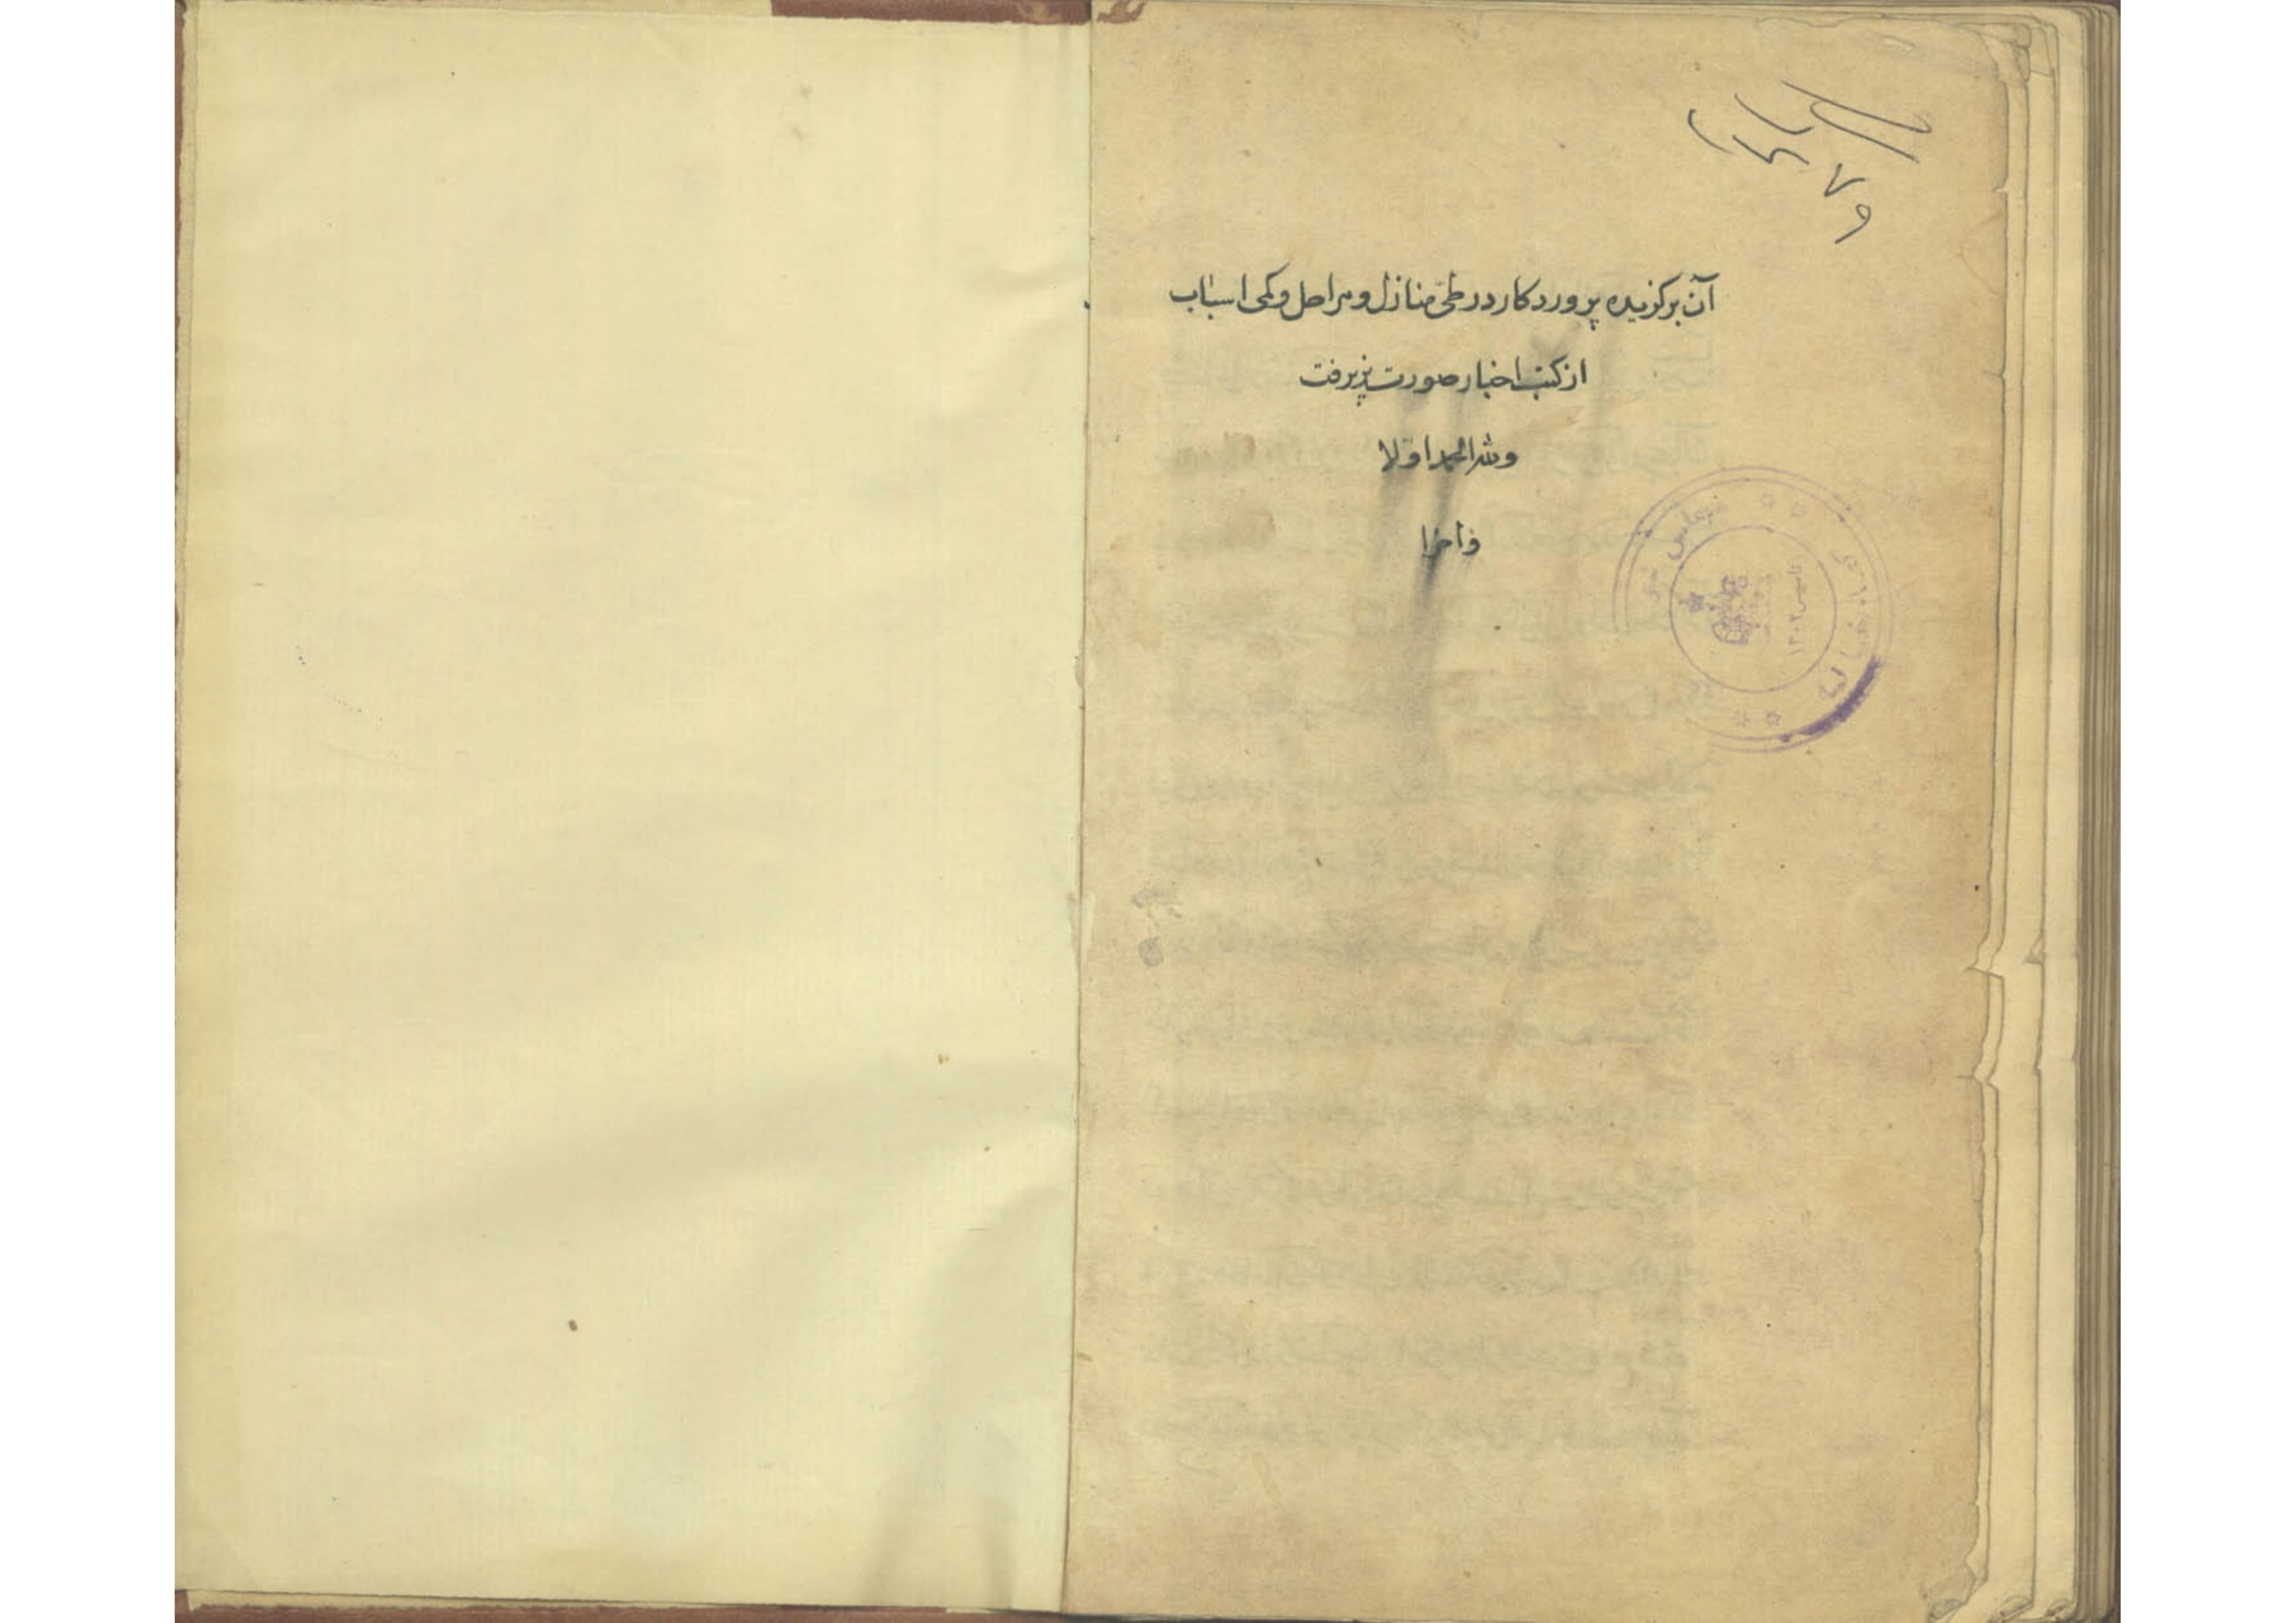 آن برکزیده پروردکار در طیّ منازل و مراحل و کمی اسباب
از کتب اخبار صورت پذیرفت
و لله الحمد اوّلا
و اخرا
تاسیس ۱۳۰۲